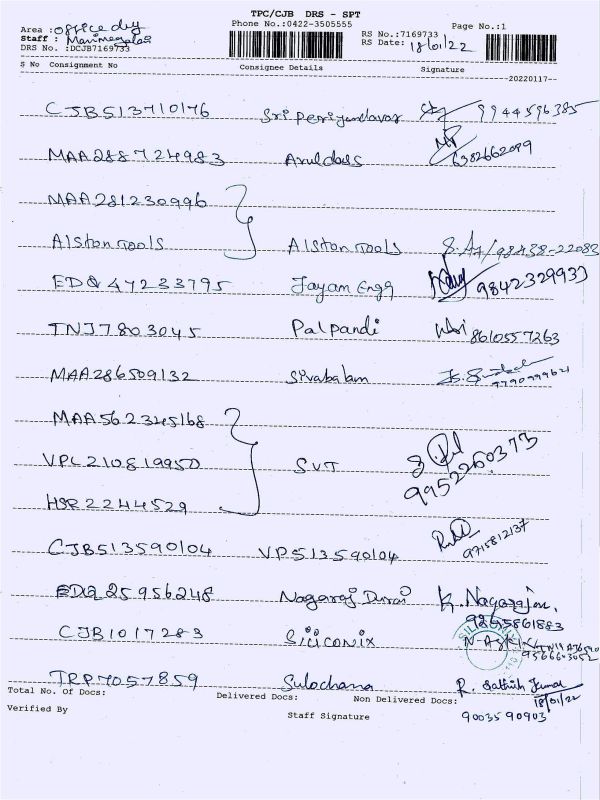 TPC/CJB DRS - SPT
Area : office
Phone No.:0422-3505555
Page No.:1
Staff : Manimegalai
RS No.:7169733
DRS No. :DCJB7169733
RS Date: 18/01/22
S No Consignment No Consignee Details Signature
20220117
CJB513710176 Sri Periyandavar 9944596385
MAA288724983 Aruldoss 6382662099
MAA281230996
Alston Tools Alston Tools 98438-22083
EDQ47233795 Jayam Engg 9842329933
TNJ7803045 Palpandi 8610557263
MAA286509132 Sivabalam
MAA562345168
VPL210819950 SVT 9952260373
HSR2244529
CJB513590104 VP513590104 9715812137
EDQ25956248 Nagaraj Durai K. Nagarajan,
CJB1017283 Siliconix
9566603052
TRP7057859 Sulochana R. Sathish Kumar
Total No. Of Docs: Delivered Docs: Non Delivered Docs: 18/01/22
Verified By Staff Signature 9003590903